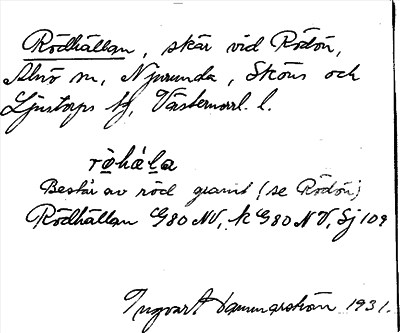 Rödhällan, skär vid Rödön,
Alnö sn, Njurunda, Sköns och
Ljustorps tg, Västernorrl. l.
rö̀há̀la
Består av röd granit (se Rödön)
Rödhällan G80 NV, k G80 NV, Sj 109
Ingvar Hammarström 1931.